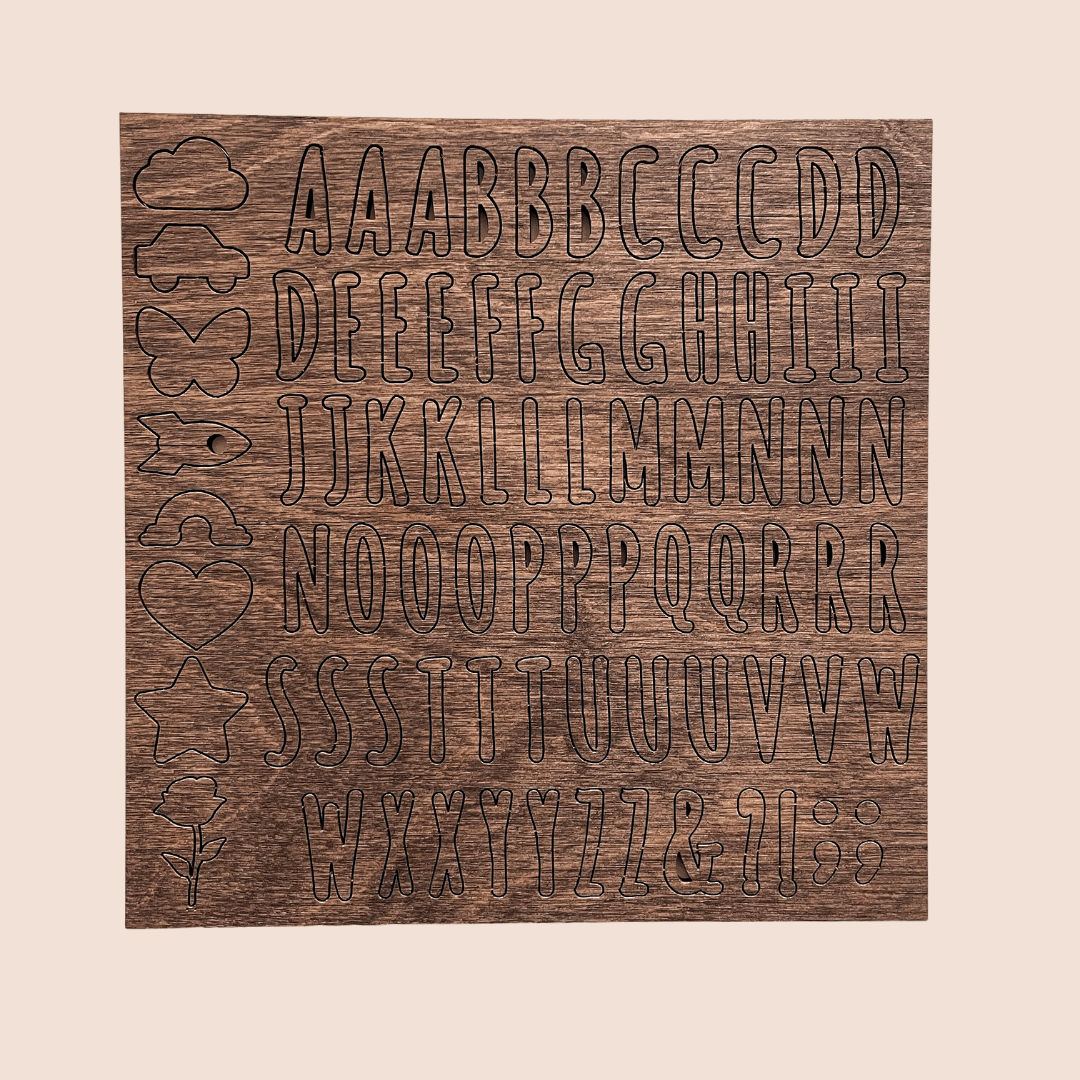 AAABBBCCCDD
DEEEFFGGHHIII
JJKKLLLMMNNN
NOOOPPPQQRRR
SSSTTTUUUVVW
WXXYYZZ&?!:;